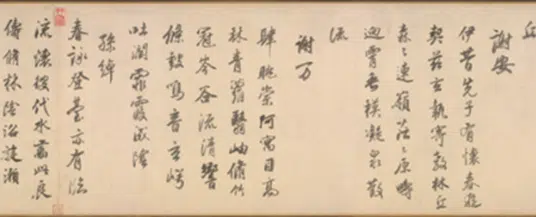 丘
謝安
伊昔先子有懷春遊
契茲言執寄敖林丘
森々連嶺茫々原疇
迥霄凝泉散
流
謝万
肆眺崇阿寓目高
林青蘿翳岫脩竹
冠岑谷流清響
條鼓鳴音玄崿
吐潤霏霞成陰
孫綽
春詠登臺亦有臨
流懷彼伐木肅此良
儔脩林陰沼旋瀨